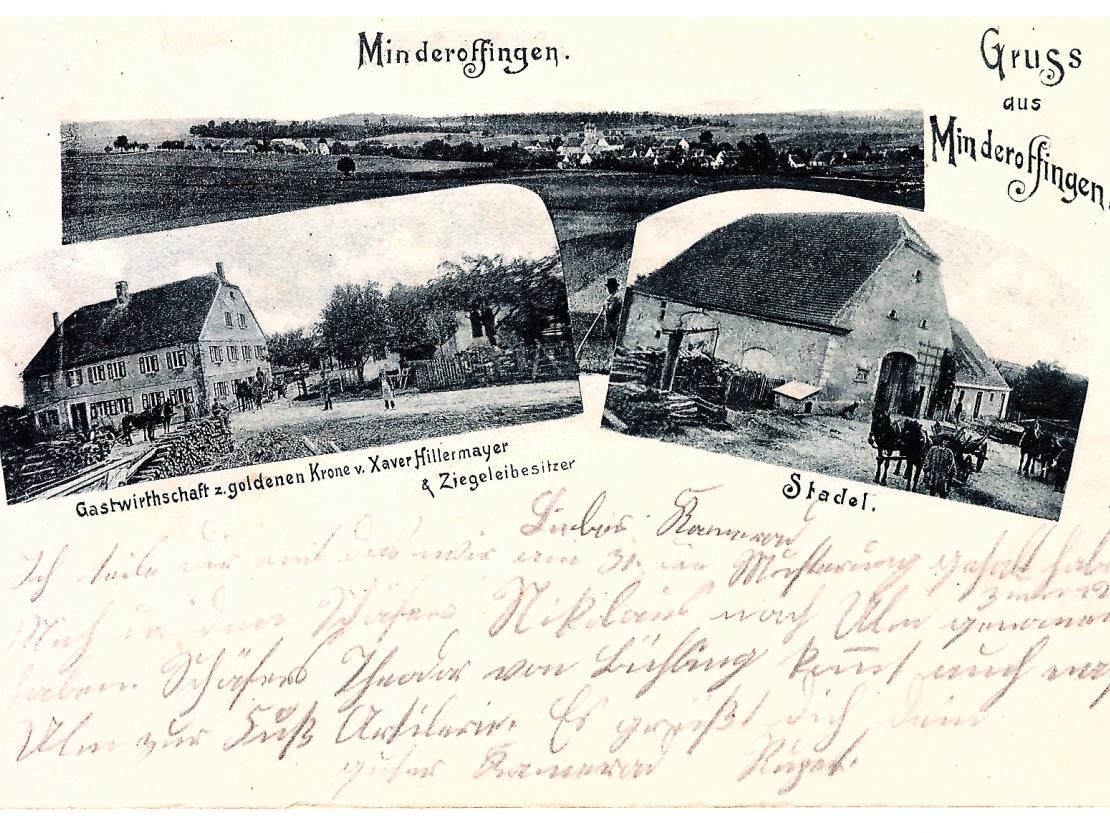 Minderoffingen.
Gruss
aus
Minderoffingen.
Gastwirthschaft z. goldenen Krone v. Xaver Hillermayer
& Ziegeleibesitzer
Stadel.
Liebes Kamerad
Ich teile dir mit das wir am 31. die Musterung gehabt hab
Mich u. den Schäfers Nikolaus nach Ulm genomen
haben Schäfers Theodor von Bühling kommt auch nach
Ulm zur Fuß Artilerie. Es grüßt dich dein
guter Kamerad